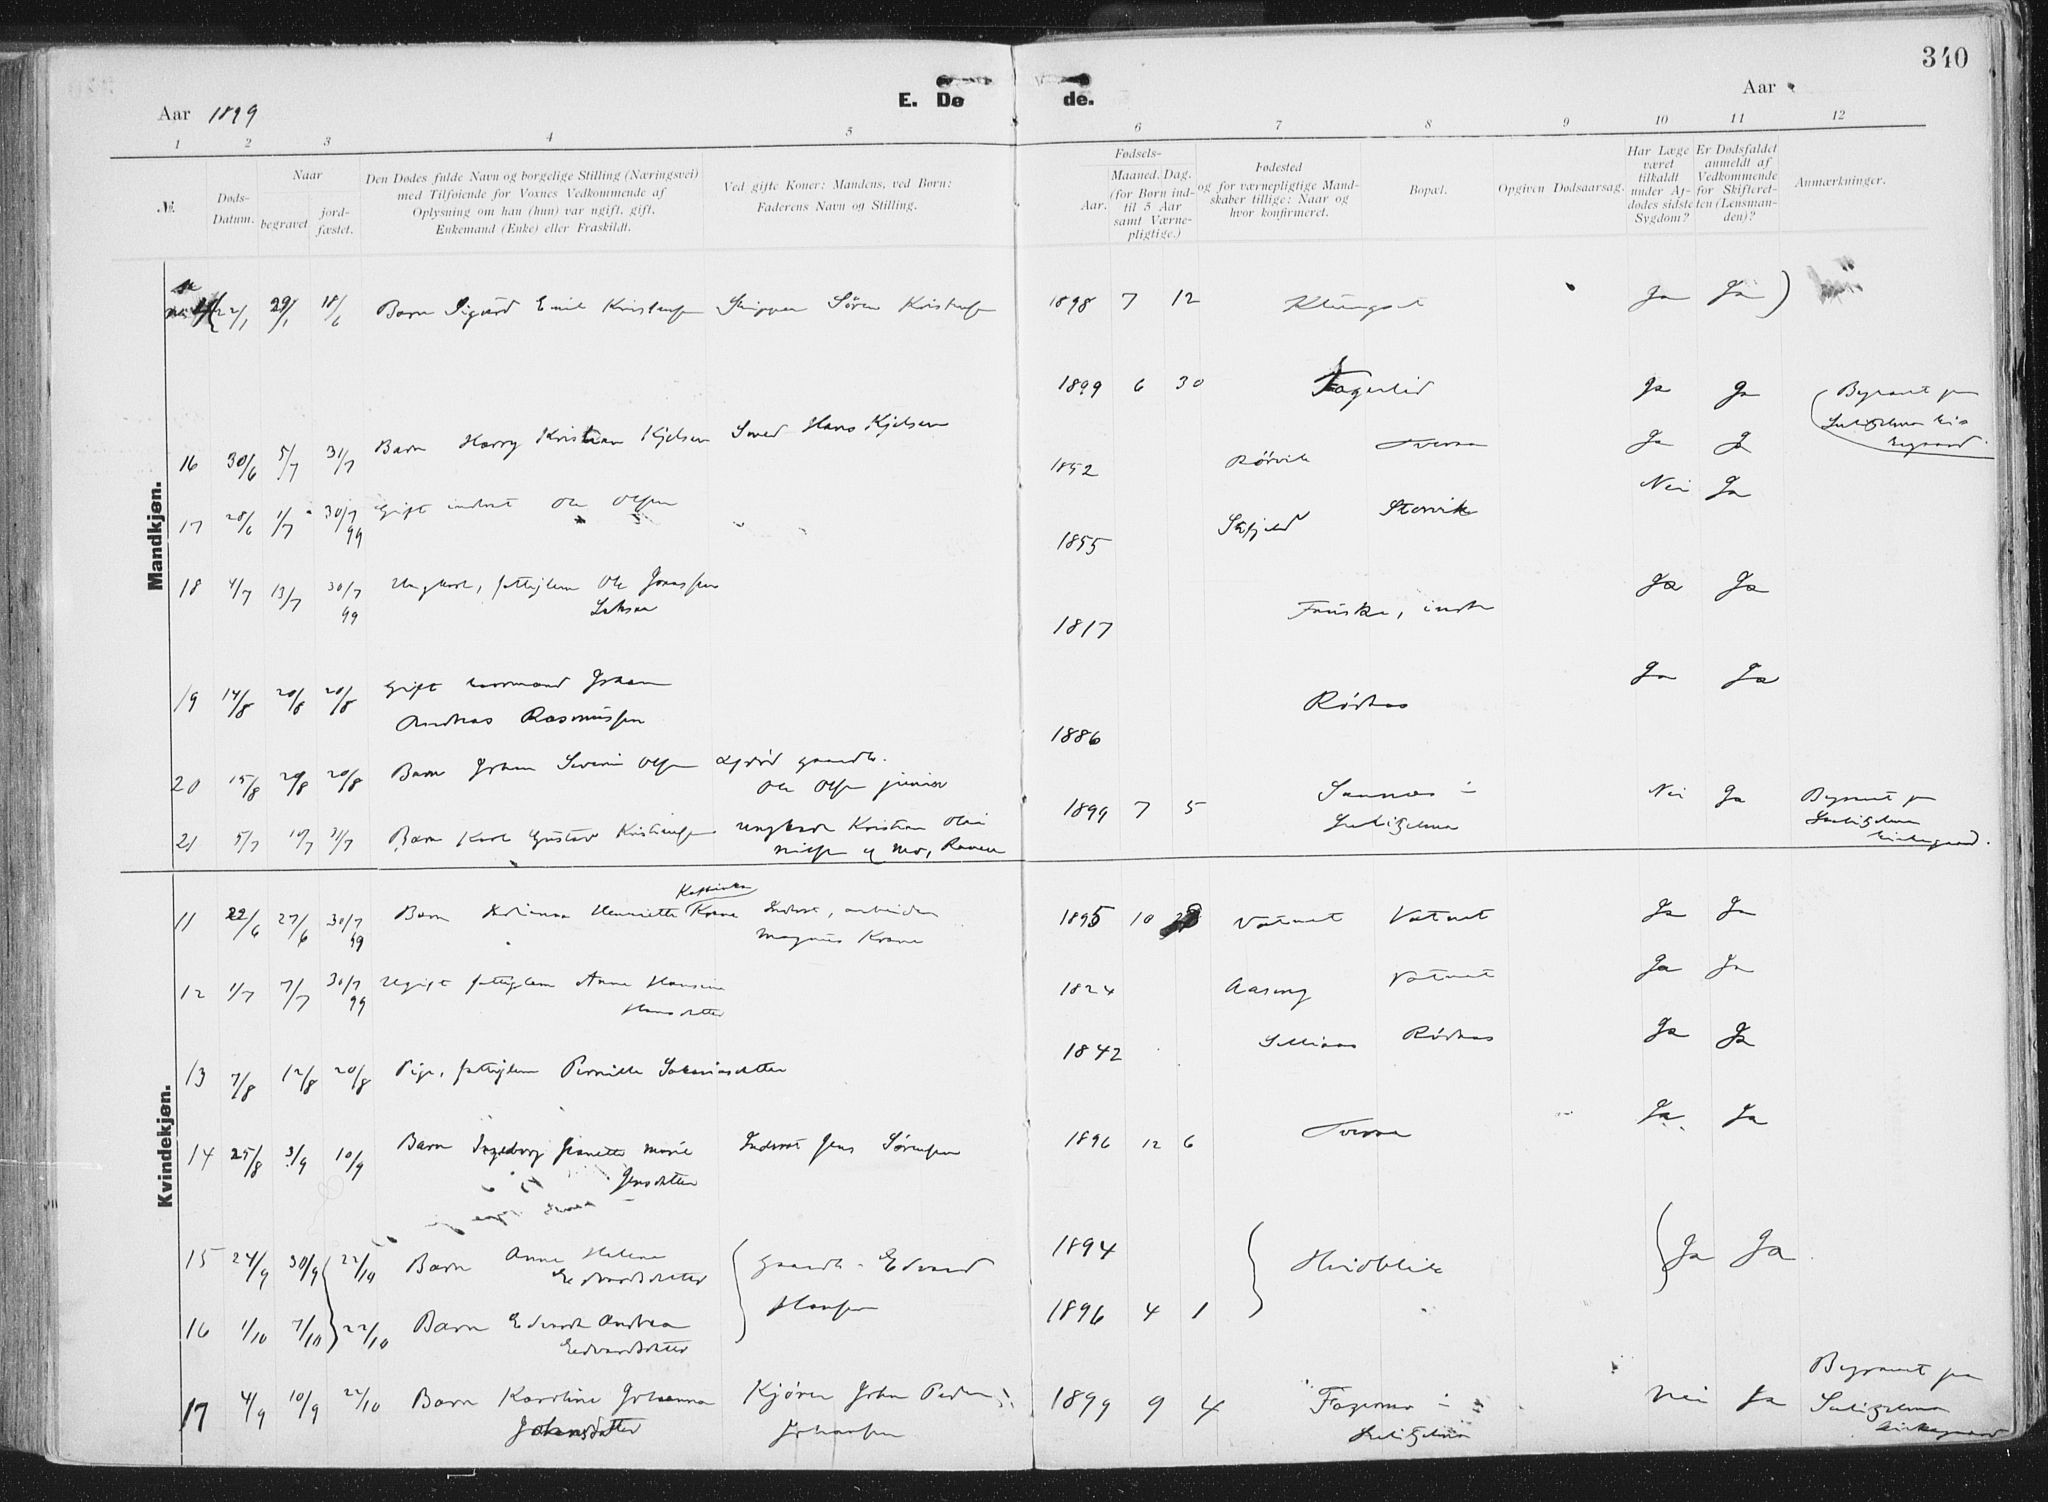 340
E. Dø de.
Aar 1899
Aar
1 2 3 4 5 6 7 8 9 10 11 12
№.
Døds-Datum.
Naar
begravet
jord-fæstet.
Den Dødes fulde Navn og borgelige Stilling (Næringsvei)
med Tilføiende for Voxnes Vedkommende af
Oplysning om han (hun) var ugift, gift,
Enkemand (Enke) eller Fraskildt.
Ved gifte Koner: Mandens, ved Børn:
Faderens Navn og Stilling.
Fødsels-
Aar.
Maaned. Dag.
(for Børn ind-
til 5 Aar
samt Værne-
pligtige.)
Fødested
og for værnepligtige Mand-
skaber tillige: Naar og
hvor konfirmeret.
Bopæl.
Opgiven Dødsaarsag.
Har Læge
været
tilkaldt
under Af-
dødes sidste
Sygdom?
Er Dødsfaldet
anmeldt af
Vedkommende
for Skifteret-
ten (Lensman-
den)?
Anmærkninger.
Mandkjøn.
22/1 29/1 18/6 Barn Sigurd Emil Kristensen Skipper Søren Kristensen 1898 7 12 Klungset Ja Ja
16 30/6 5/7 31/7 Barn Harry Kristian Kjelsen Smed Hans Kjelsen 1899 6 30 Fagerlid Ja Ja Begravet paa
17 28/6 1/7 30/7 99 Gift inderst Ole Olsen 1852 Rørvik Tveraa Ja Ja
18 4/7 13/7 30/7 99 Ungkarl, fattiglem Ole Jonassen 1855 Skjeld Storvik Nei Ja
19 14/8 20/8 20/8 Gift Johan
Andreas Rasmussen 1817 Fauske, Ja Ja
20 15/8 20/8 20/8 Barn Johan Severin Olsen gaardb.
Ole Olsen junior 1886 Rødaas Ja Ja
21 5/7 10/7 31/7 Barn Karl Gustav Kristiansen Ungkarl Kristian Olai 1899 7 5 Sannes i
Sulitjelma Nei Ja Begravet paa
Sulitjelma
kirkegaard.
Kvindekjøn.
11 22/6 27/6 30/7 99 Barn Henriette Krane Inderst, arbeider
Magnus Krane 1895 10 Vatnet Vatnet Ja Ja
12 1/7 7/7 30/7 99 Ugift fattiglem Anne Hansine
Hansdatter 1824 Aaseng Vatnet Ja Ja
13 7/8 12/8 20/8 Pige, fattiglem Pernille Zakariasdatter 1842 Rødaas Ja Ja
14 25/8 3/9 10/9 Barn Ingeborg Jeanette Marie
Jensdatter Inderst Jens Sørensen 1896 12 6 Tveraa Ja Ja
15 24/9 30/9 22/10 Barn Anna Helene
Edvardsdatter Gaardb. Edvard
Hansen 1894 Hvidblik Ja Ja
16 1/10 7/10 22/10 Barn Andrea
Edvardsdatter 1896 4 1
17 4/9 10/9 22/10 Barn Karoline Johanna
Johansdatter Kjører Johan Peder
Johansen 1899 9 4 Fagermo i
Sulitjelma Nei Ja Begravet paa
Sulitjelma
kirkegaard